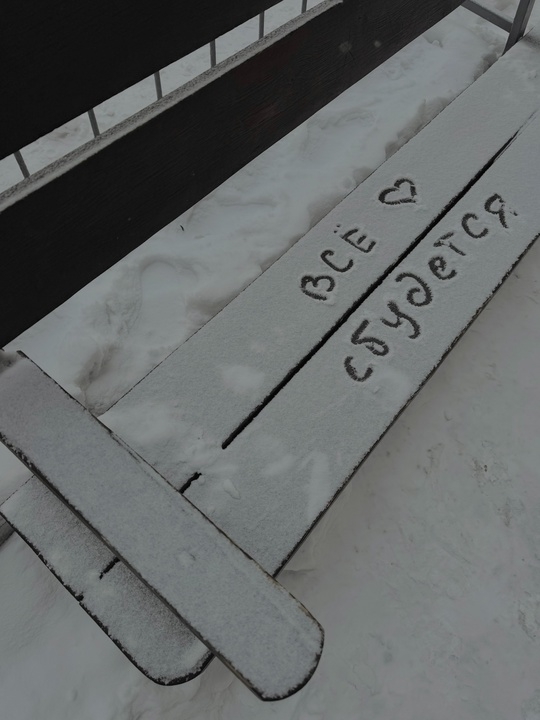 ВСЁ ♡
сбудется.